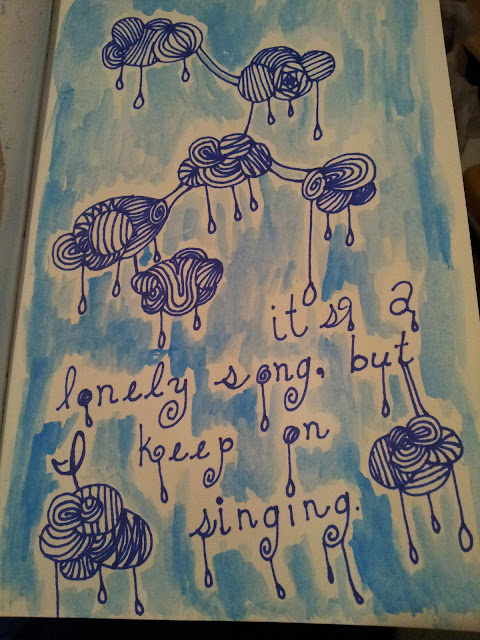 it's a
lonely song, but
I keep on
singing.